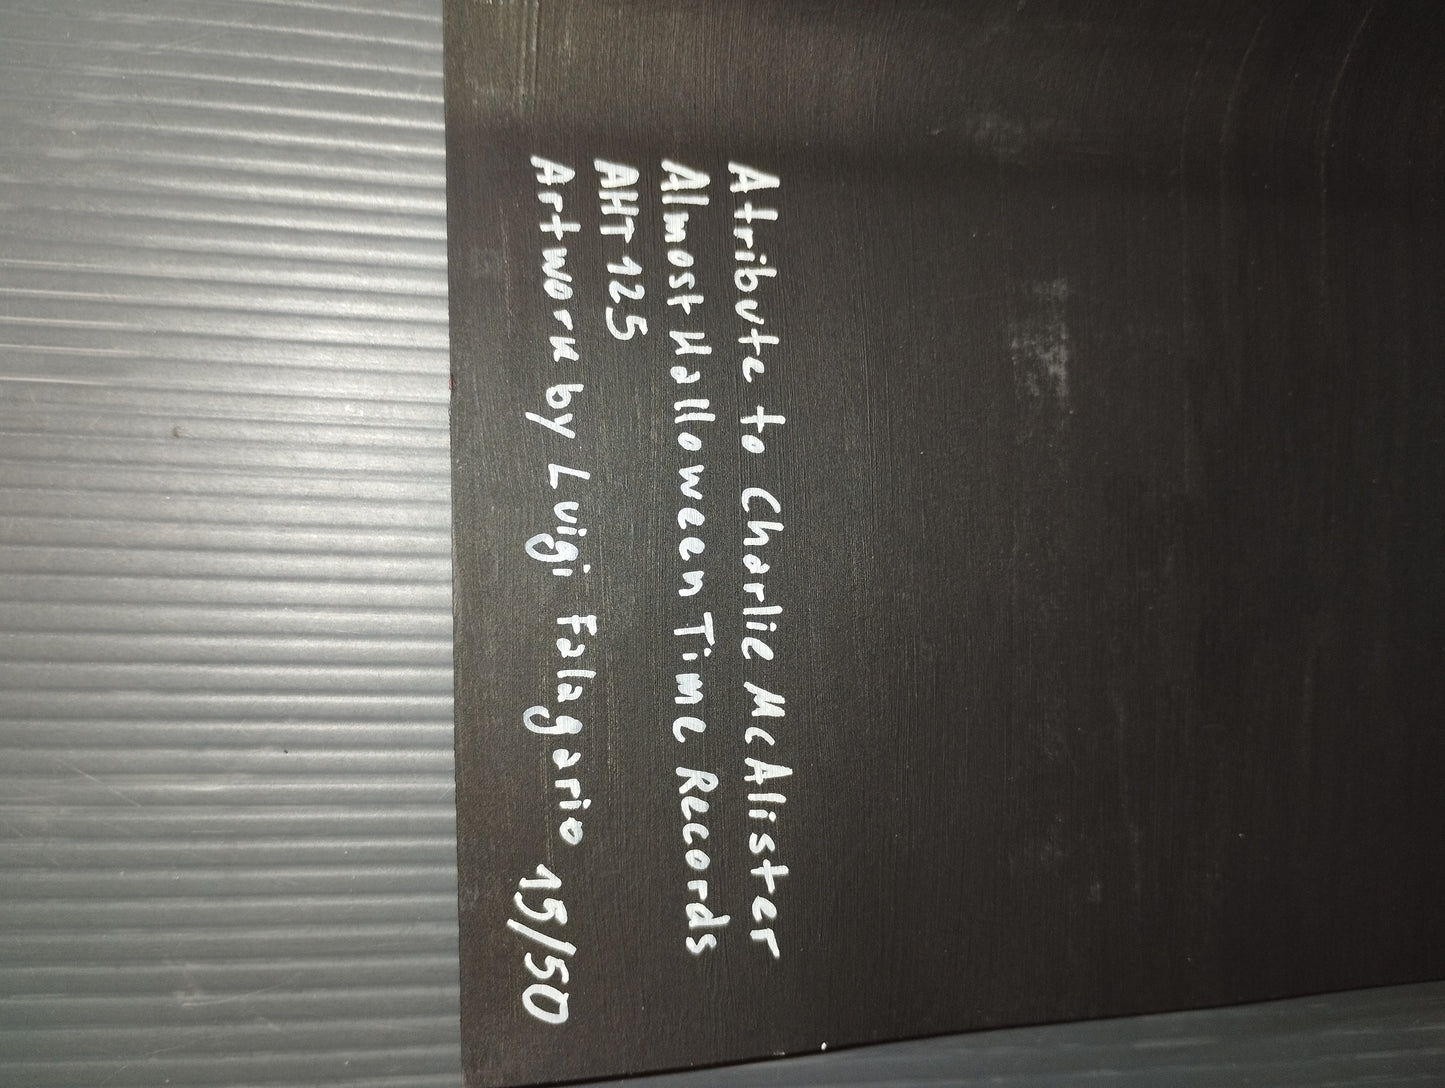 A tribute to Charlie McAlister
Almost Halloween Time Records
AHT 125
Artwork by Luigi Falagario 15/50